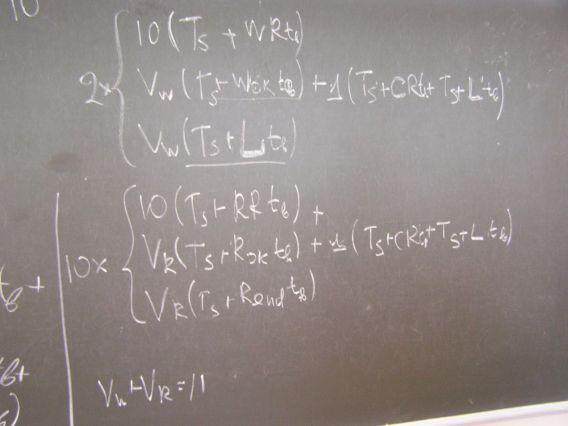 10
2x { 10 (Ts + WRtb)
Vw (Ts + Wokttb) + 1 (Ts + CRtb + Ts + L tb)
Vw (Ts + L tb)
10x { 10 (Ts + RR tb) +
VR (Ts + Rok tb) + (Ts + CRtb + Ts + L tb)
VR (Ts + Rend tb)
tb +
Vw + VR = 11